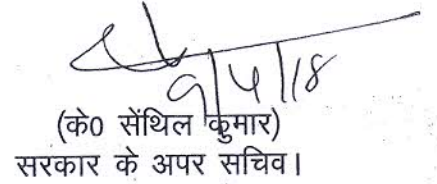 9/4/18
(के0 सेंथिल कुमार)
सरकार के अपर सचिव।